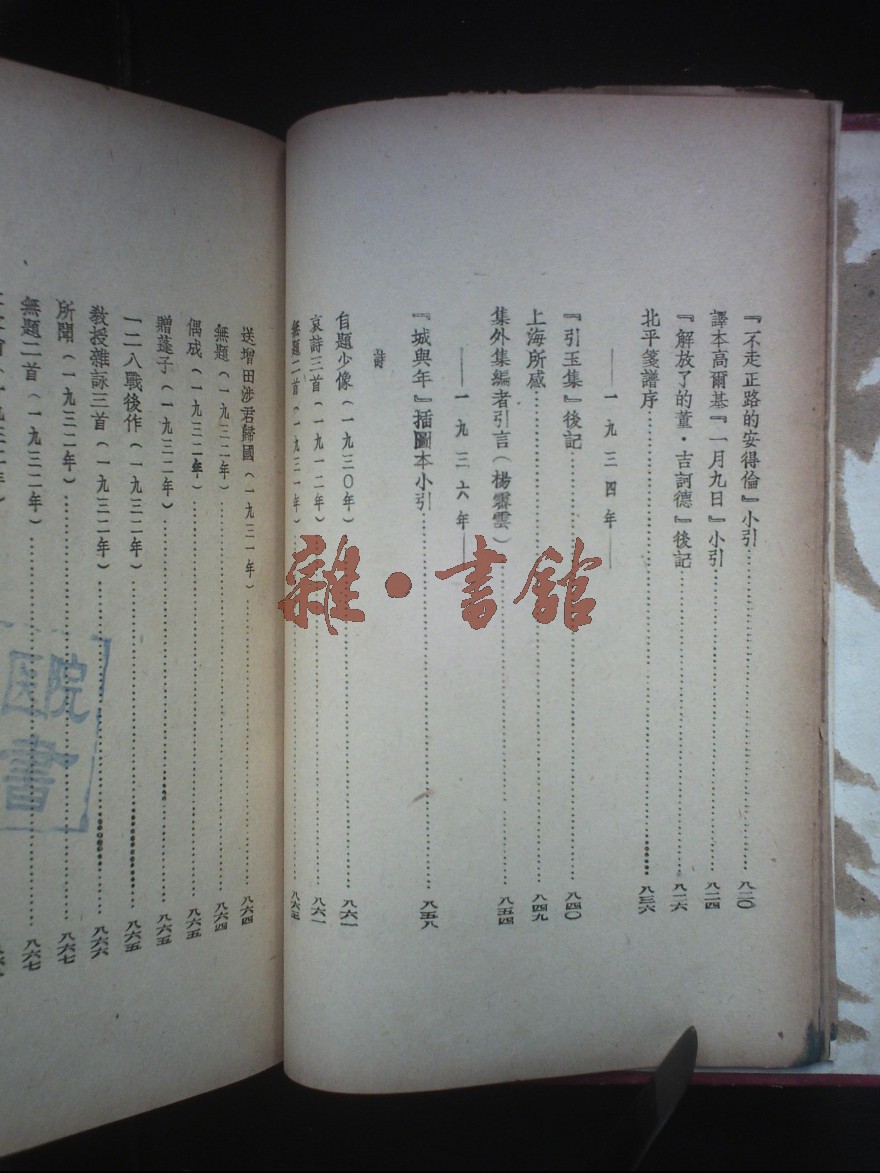 『不走正路的安得倫』小引……八二〇
譯本高爾基『一月九日』小引……八二四
『解放了的董·吉訶德』後記……八二六
北平箋譜序……八三六
——一九三四年——
『引玉集』後記……八四〇
上海所感……八四九
集外集編者引言（楊霽雲）……八五四
——一九三六年——
『城與年』插圖本小引……八五八
詩
自題少像（一九三〇年）……八六一
哀詩三首（一九一二年）……八六一
無題二首（一九三一年）……八六三
送增田涉君歸國（一九三一年）……八六四
無題（一九三二年）……八六四
偶成（一九三二年）……八六五
贈蓬子（一九三二年）……八六五
一二八戰後作（一九三二年）……八六五
教授雜詠三首（一九三二年）……八六六
所聞（一九三二年）……八六七
無題二首（一九三二年）……八六七
雜·書館
医院
書